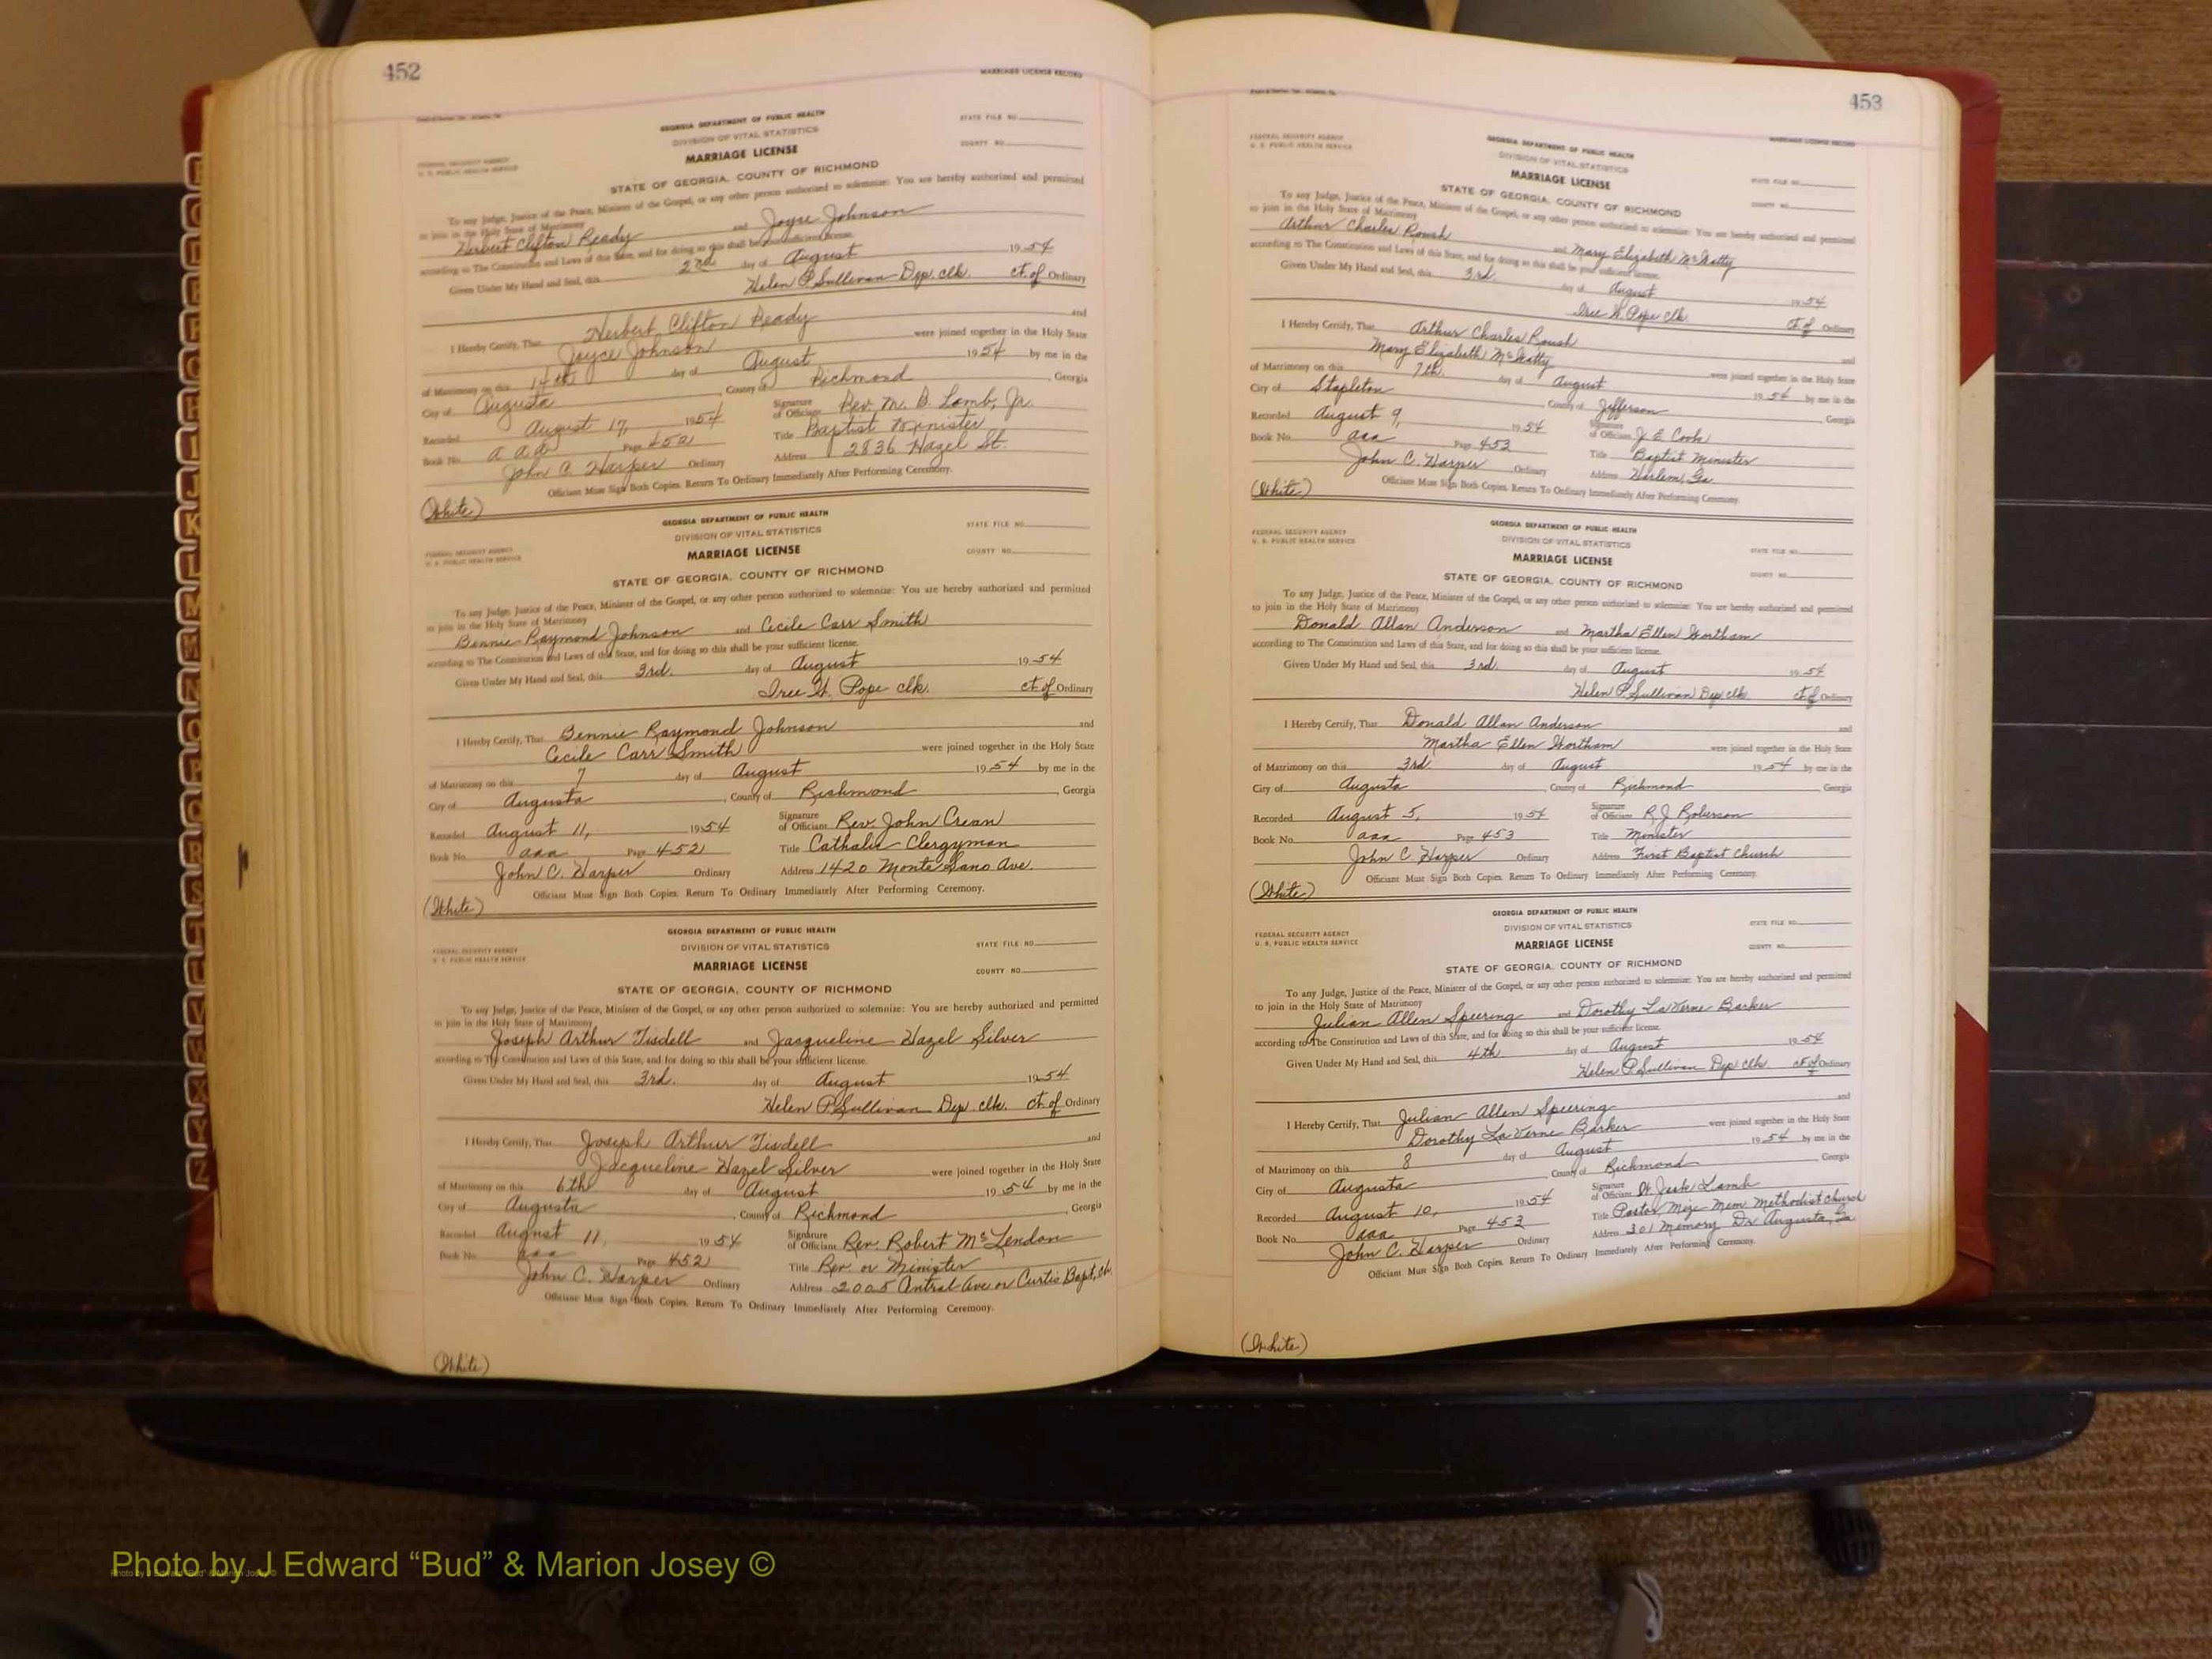 452
MARRIAGE LICENSE RECORD
GEORGIA DEPARTMENT OF PUBLIC HEALTH
DIVISION OF VITAL STATISTICS
MARRIAGE LICENSE
STATE OF GEORGIA, COUNTY OF RICHMOND
FEDERAL SECURITY AGENCY
U. S. PUBLIC HEALTH SERVICE
STATE FILE NO.
COUNTY NO.
To any Judge, Justice of the Peace, Minister of the Gospel, or any other person authorized to solemnize: You are hereby authorized and permitted
to join in the Holy State of Matrimony
Herbert Clifton Ready and Joyce Johnson
according to The Constitution and Laws of this State, and for doing so this shall be your sufficient license.
Given Under My Hand and Seal, this 2nd day of August 1954
Helen P. Sullivan Dep. clk. ct. of Ordinary
I Hereby Certify, That Herbert Clifton Ready and
Joyce Johnson were joined together in the Holy State
of Matrimony on this 14th day of August 1954 by me in the
City of Augusta, County of Richmond, Georgia
Recorded August 17, 1954 Signature of Officiant Rev. M. B. Lamb, Jr.
Book No. a a a Page 452 Title Baptist Minister
John C. Harper Ordinary Address 2836 Hazel St.
Officiant Must Sign Both Copies. Return To Ordinary Immediately After Performing Ceremony.
(White)
GEORGIA DEPARTMENT OF PUBLIC HEALTH
DIVISION OF VITAL STATISTICS
MARRIAGE LICENSE
STATE OF GEORGIA, COUNTY OF RICHMOND
FEDERAL SECURITY AGENCY
U. S. PUBLIC HEALTH SERVICE
STATE FILE NO.
COUNTY NO.
To any Judge, Justice of the Peace, Minister of the Gospel, or any other person authorized to solemnize: You are hereby authorized and permitted
to join in the Holy State of Matrimony
Bennie Raymond Johnson and Cecile Carr Smith
according to The Constitution and Laws of this State, and for doing so this shall be your sufficient license.
Given Under My Hand and Seal, this 3rd. day of August 1954
Iree W. Pope clk. ct. of Ordinary
I Hereby Certify, That Bennie Raymond Johnson and
Cecile Carr Smith were joined together in the Holy State
of Matrimony on this 7 day of August 1954 by me in the
City of Augusta, County of Richmond, Georgia
Recorded August 11, 1954 Signature of Officiant Rev. John Crean
Book No. aaa Page 452 Title Catholic Clergyman
John C. Harper Ordinary Address 1420 Monte Sano Ave.
Officiant Must Sign Both Copies. Return To Ordinary Immediately After Performing Ceremony.
(White)
GEORGIA DEPARTMENT OF PUBLIC HEALTH
DIVISION OF VITAL STATISTICS
MARRIAGE LICENSE
STATE OF GEORGIA, COUNTY OF RICHMOND
FEDERAL SECURITY AGENCY
U. S. PUBLIC HEALTH SERVICE
STATE FILE NO.
COUNTY NO.
To any Judge, Justice of the Peace, Minister of the Gospel, or any other person authorized to solemnize: You are hereby authorized and permitted
to join in the Holy State of Matrimony
Joseph Arthur Tisdell and Jacqueline Hazel Silver
according to The Constitution and Laws of this State, and for doing so this shall be your sufficient license.
Given Under My Hand and Seal, this 3rd. day of August 1954
Helen P. Sullivan Dep. clk. ct. of Ordinary
I Hereby Certify, That Joseph Arthur Tisdell and
Jacqueline Hazel Silver were joined together in the Holy State
of Matrimony on this 6th day of August 1954 by me in the
City of Augusta, County of Richmond, Georgia
Recorded August 11, 1954 Signature of Officiant Rev. Robert McLendon
Book No. aaa Page 452 Title Rev. or Minister
John C. Harper Ordinary Address 2005 Central Ave or Curtis Bapt. ch.
Officiant Must Sign Both Copies. Return To Ordinary Immediately After Performing Ceremony.
(White)
453
MARRIAGE LICENSE RECORD
FEDERAL SECURITY AGENCY
U. S. PUBLIC HEALTH SERVICE
GEORGIA DEPARTMENT OF PUBLIC HEALTH
DIVISION OF VITAL STATISTICS
MARRIAGE LICENSE
STATE OF GEORGIA, COUNTY OF RICHMOND
STATE FILE NO.
COUNTY NO.
To any Judge, Justice of the Peace, Minister of the Gospel, or any other person authorized to solemnize: You are hereby authorized and permitted
to join in the Holy State of Matrimony
Arthur Charles Roush and Mary Elizabeth McNatty
according to The Constitution and Laws of this State, and for doing so this shall be your sufficient license.
Given Under My Hand and Seal, this 3rd. day of August 1954
Iree W. Pope clk. ct. of Ordinary
I Hereby Certify, That Arthur Charles Roush and
Mary Elizabeth McNatty were joined together in the Holy State
of Matrimony on this 7th. day of August 1954 by me in the
City of Stapleton, County of Jefferson, Georgia
Recorded August 9, 1954 Signature of Officiant J. E. Cook
Book No. aaa Page 453 Title Baptist Minister
John C. Harper Ordinary Address Harlem, Ga.
Officiant Must Sign Both Copies. Return To Ordinary Immediately After Performing Ceremony.
(White)
FEDERAL SECURITY AGENCY
U. S. PUBLIC HEALTH SERVICE
GEORGIA DEPARTMENT OF PUBLIC HEALTH
DIVISION OF VITAL STATISTICS
MARRIAGE LICENSE
STATE OF GEORGIA, COUNTY OF RICHMOND
STATE FILE NO.
COUNTY NO.
To any Judge, Justice of the Peace, Minister of the Gospel, or any other person authorized to solemnize: You are hereby authorized and permitted
to join in the Holy State of Matrimony
Donald Allan Anderson and Martha Ellen Wortham
according to The Constitution and Laws of this State, and for doing so this shall be your sufficient license.
Given Under My Hand and Seal, this 3rd. day of August 1954
Helen P. Sullivan Dep. clk. ct. of Ordinary
I Hereby Certify, That Donald Allan Anderson and
Martha Ellen Wortham were joined together in the Holy State
of Matrimony on this 3rd. day of August 1954 by me in the
City of Augusta, County of Richmond, Georgia
Recorded August 5, 1954 Signature of Officiant R. J. Roberson
Book No. aaa Page 453 Title Minister
John C. Harper Ordinary Address First Baptist Church
Officiant Must Sign Both Copies. Return To Ordinary Immediately After Performing Ceremony.
(White)
FEDERAL SECURITY AGENCY
U. S. PUBLIC HEALTH SERVICE
GEORGIA DEPARTMENT OF PUBLIC HEALTH
DIVISION OF VITAL STATISTICS
MARRIAGE LICENSE
STATE OF GEORGIA, COUNTY OF RICHMOND
STATE FILE NO.
COUNTY NO.
To any Judge, Justice of the Peace, Minister of the Gospel, or any other person authorized to solemnize: You are hereby authorized and permitted
to join in the Holy State of Matrimony
Julian Allen Speering and Dorothy LaVerne Barker
according to The Constitution and Laws of this State, and for doing so this shall be your sufficient license.
Given Under My Hand and Seal, this 4th day of August 1954
Helen P. Sullivan Dep. clk. ct. of Ordinary
I Hereby Certify, That Julian Allen Speering and
Dorothy LaVerne Barker were joined together in the Holy State
of Matrimony on this 8 day of August 1954 by me in the
City of Augusta, County of Richmond, Georgia
Recorded August 10, 1954 Signature of Officiant W. Jack Lamb
Book No. aaa Page 453 Title Pastor, Mize Mem. Methodist Church
John C. Harper Ordinary Address 301 Memory Dr. Augusta, Ga
Officiant Must Sign Both Copies. Return To Ordinary Immediately After Performing Ceremony.
(White)
Photo by J Edward “Bud” & Marion Josey ©
Photo by J Edward “Bud” & Marion Josey ©